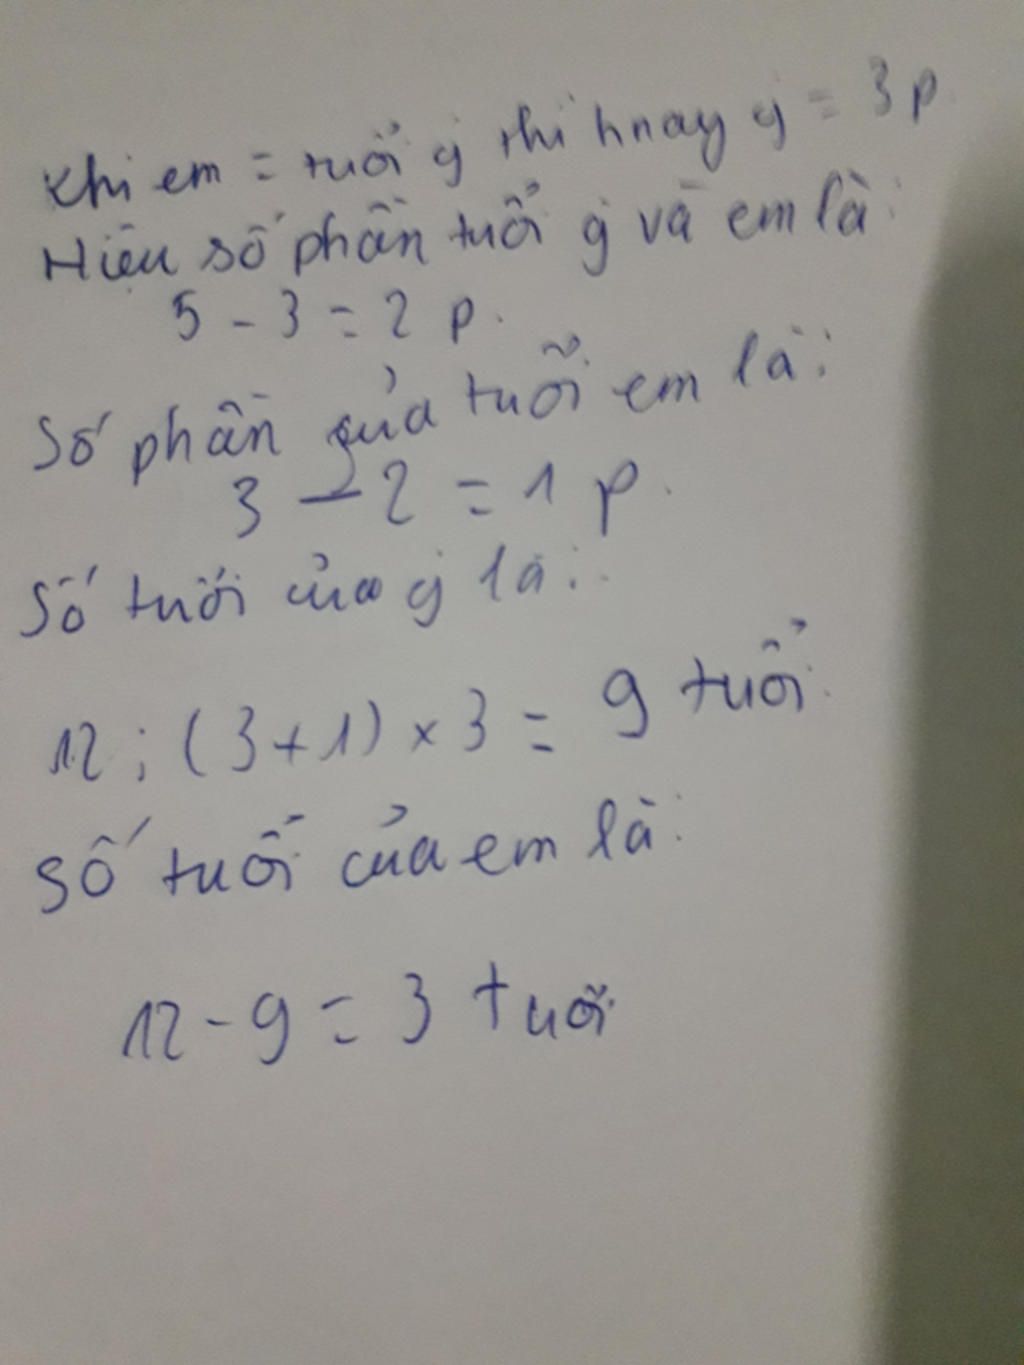 Khi em = tuổi g thì hnay g = 3 p
Hiệu số phần tuổi g và em là:
5 - 3 = 2 p.
Số phần của tuổi em là:
3 - 2 = 1 p.
Số tuổi của g là:
12 : (3 + 1) x 3 = 9 tuổi.
Số tuổi của em là:
12 - 9 = 3 tuổi